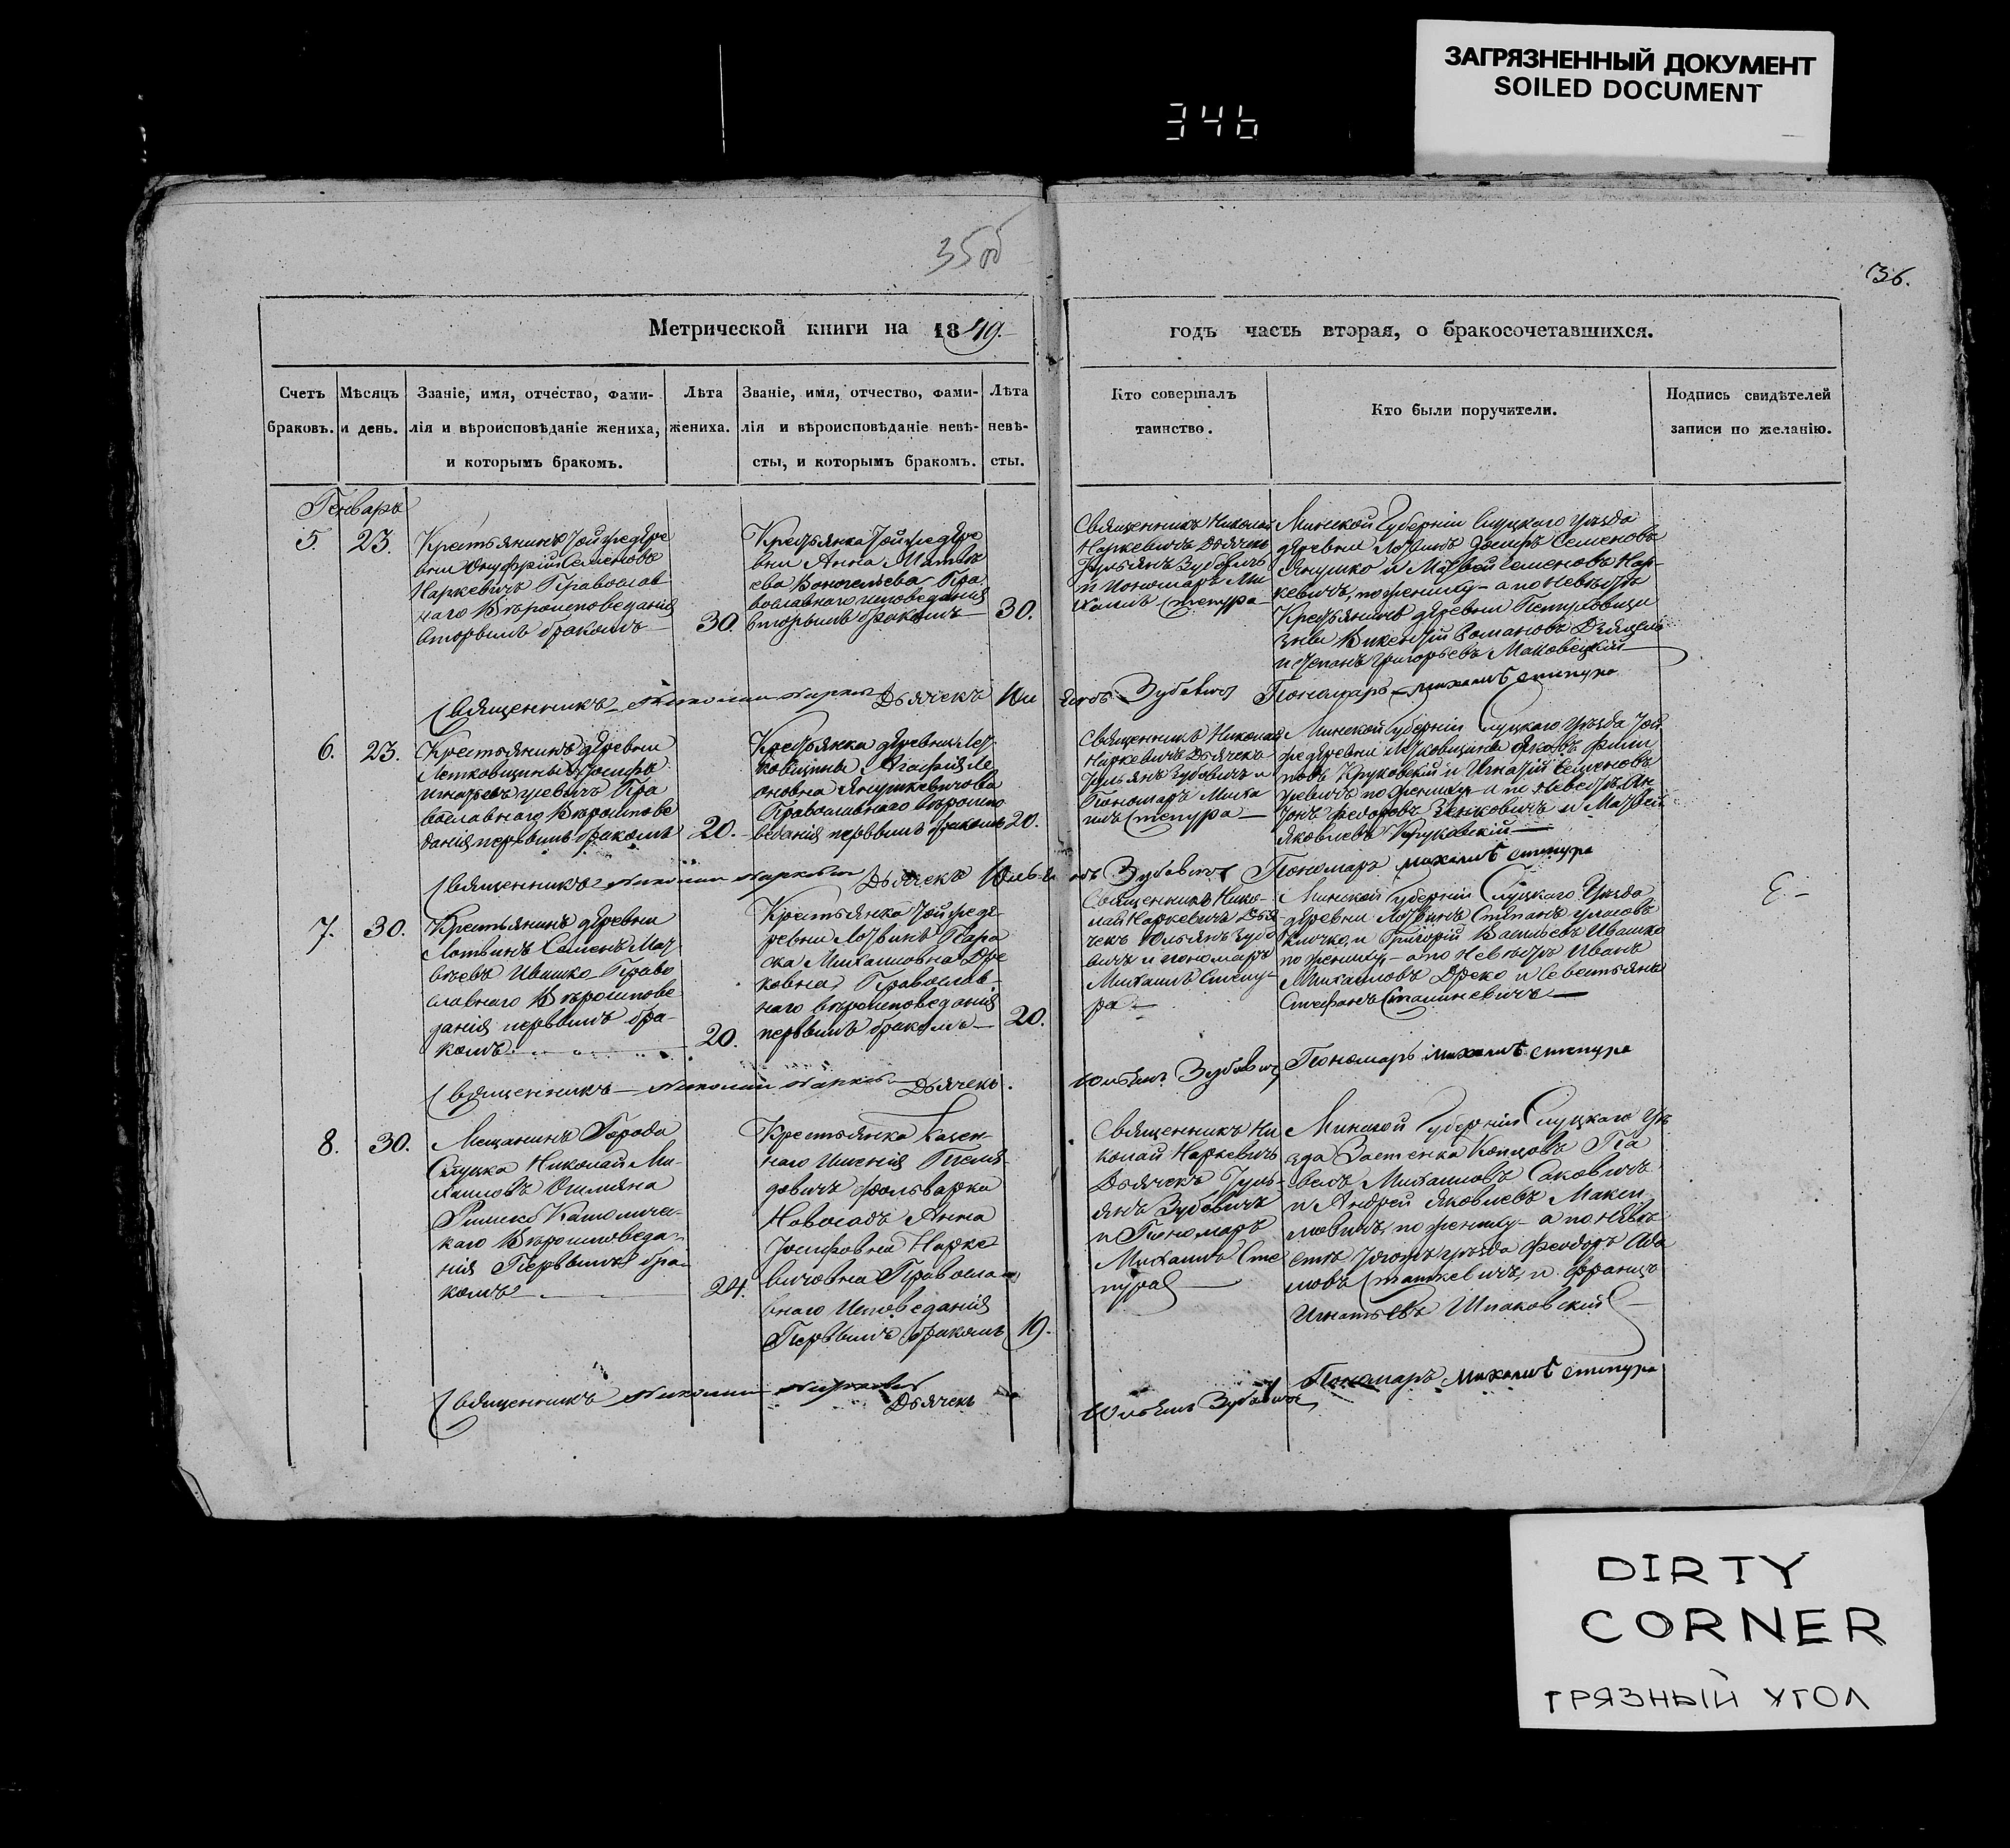 ЗАГРЯЗНЕННЫЙ ДОКУМЕНТ
SOILED DOCUMENT
346
35об
36.
Метрической книги на 1849.
годъ часть вторая, о бракосочетавшихся.
Счетъ браковъ.
Мѣсяцъ и день.
Званіе, имя, отчество, фами-
лія и вѣроисповѣданіе жениха,
и которымъ бракомъ.
Лѣта жениха.
Званіе, имя, отчество, фами-
лія и вѣроисповѣданіе невѣ-
сты, и которымъ бракомъ.
Лѣта невѣ-
сты.
Кто совершалъ
таинство.
Кто были поручители.
Подпись свидѣтелей
записи по желанію.
Генварь
5.
23.
Крестьянинъ той же дере
вни Онуфрий Семеновъ
Наркевичъ Православ
наго Вѣроисповеданія
вторымъ бракомъ
30.
Крестьянка той же дере
вни Анна Матвѣ
ева Пра
вославнаго исповеданія
вторымъ бракомъ
30.
Священникъ Николай
Наркевичъ Дьячекъ
Зубовичъ
и Пономарь Ми
хаилъ Степура
Минской Губерніи Слуцкаго Уѣзда
деревни Лотвинъ Іосифъ Семеновъ
Янушко и Матвей Семеновъ Нар-
кевичъ, по жениху - а по невѣстѣ
Крестьянинъ деревни
Викентій Романовъ
и Степанъ Григорьевъ Маковецкій
Священникъ Николай Дьячекъ Юлі
янъ Зубовичъ Пономарь Михаилъ Степура
6.
23.
Крестьянинъ деревни
Летковщины Іосифъ
Игнатьевъ Пра
вославнаго Вѣроиспове
данія первымъ бракомъ
20.
Крестьянка деревни Лет
ковщины Агафія Ле
оновна Янушкевичова
Православнаго Вѣроиспо
веданія первымъ бракомъ
20.
Священникъ Николай
Наркевичъ Дьячекъ
Зубовичъ и
Пономарь Миха
илъ Степура
Минской Губерніи Слуцкаго Уѣзда той
же деревни Летковщины Яковъ Филип
повъ Круковскій и Игнатій Семеновъ
по жениху - и по невестѣ Ан
тонъ Федоровъ и Матвей
Яковлевъ Круковскій
Священникъ Николай Дьячекъ
Зубовичъ Пономарь Михаилъ Степура
7.
30.
Крестьянинъ деревни
Лотвинъ Семенъ Мат
вѣевъ Ивашко Право
славнаго Вѣроиспове
данія первымъ бра-
комъ
20.
Крестьянка той же де-
ревни Лотвинъ Пара
ска Михаиловна Дре
ковна Православ-
наго вѣроисповеданія
первымъ бракомъ
20.
Священникъ Нико-
лай Наркевичъ Дья
чекъ Юльянъ Зубо
вичъ и пономарь
Михаилъ Степу-
ра
Минской Губерніи Слуцкаго Уѣзда
деревни Лотвинъ Степанъ
Клочко, и Григорій Васильевъ Ивашко
по жениху, - а по Невѣстѣ Иванъ
Михаиловъ Дреко и Севестьянъ
Стефанъ Сташкевичъ
Священникъ Николай Дьячекъ
Зубовичъ Пономарь Михаилъ Степура
8.
30.
Мещанинъ Города
Слуцка Николай Ми-
хаиловъ
Римско Католичес-
каго Вѣроисповеда-
нія Первымъ бра-
комъ
24.
Крестьянка Казен-
наго Именія
фольварка
Новосадъ Анна
Іосифовна Нарке
вичовна Правосла-
внаго Исповеданія
Первымъ бракомъ
19.
Священникъ Ни
колай Наркевичъ
Дьячекъ Iуль-
янъ Зубовичъ
и Пономарь
Михаилъ Сте
пура
Минской Губерніи Слуцкаго Уѣ
зда Застенка Копцовъ Па
велъ Михаиловъ Саковичъ
и Андрей Яковлевъ Макси
мовичъ, по жениху - а по невѣ
стѣ того жъ уѣзда Феодоръ Ада
мовъ Сташкевичъ, и Францъ
Игнатьевъ Шпаковскій
Священникъ Николай Дьячекъ
Зубовичъ Пономарь Михаилъ Степура
DIRTY
CORNER
ГРЯЗНЫЙ УГОЛ